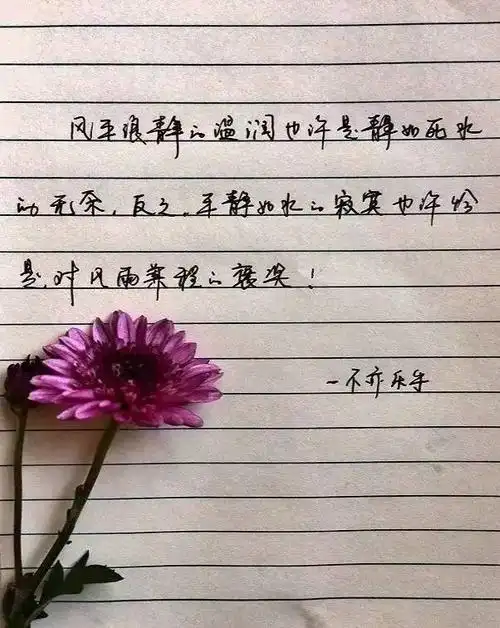 风平浪静的温润也许是静如死水
的形容，反之，平静如水的寂寞也许恰
是对风雨兼程的褒奖！
—不亦乐乎